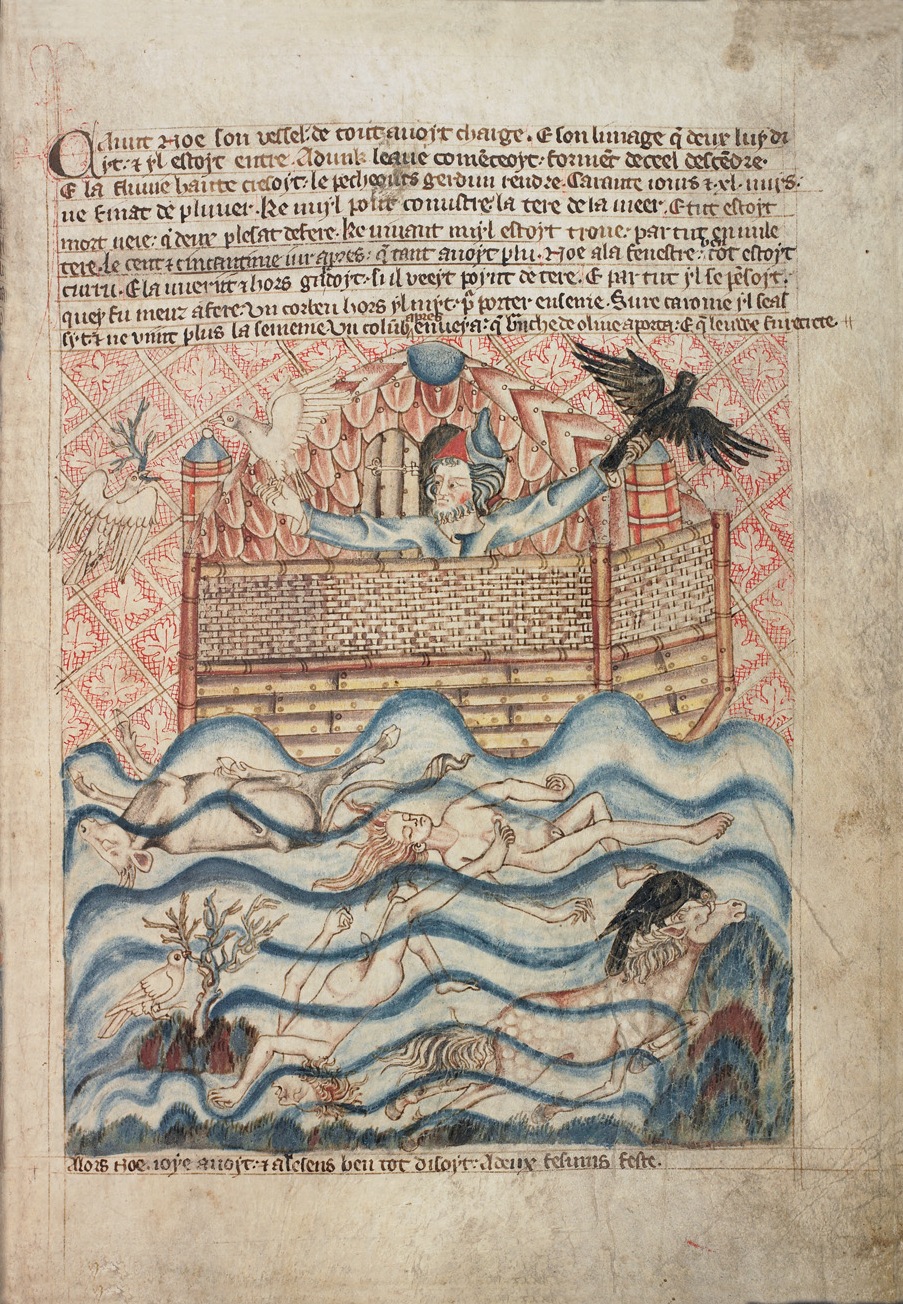 Qduut Noe son vessel de tout auoyt charge. E son linage q̄ deux luy di
yt. ⁊ yl estoyt entre. Adunk leaue comēceoyt. formēt deceel descēdre.
E la fluuie hautte cresoyt. le pecheours gerdun rendre. Caraunte iours ⁊ .xl. nuys.
ne finat de pluuer. Ke nuyl pout conustre la tere de la meer. E tut estoyt
mort ueie. q̄ deux plesat de fere. Ke uiuant nuyl estoyt troue. par tut en unile
tere. Le cent ⁊ cincantime iur apres. q̄ tant auoyt plu. Noe ala fenestre. tot estoyt
curu. E la uuerit ⁊ hors gardoyt. si il veeyt poynt de tere. E par tut yl se pēsoyt.
quey fu meuz a fere. Un corbeu hors yl myt. pᵣ porter ensenie. Sure caronie yl seal
syt. ⁊ ne vint plus la semeine Un colūb apres enueya. q̄ brūche de oliue aporta. E q̄ leuwe fu retrete.
Alors Noe. ioye auoyt. ⁊ a ke sens ben tot disoyt. A deux fesums feste.